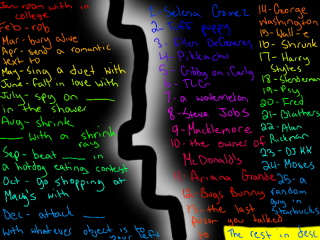 Jan-room with in
college
Feb - rob
Mar - bury alive
Apr - send a romantic
text to
May - sing a duet with
June - fall in love with
July - spy on ___
in the shower
Aug - shrink
___ with a shrink
ray
Sep - beat ___ in
a hotdog eating contest
Oct - go shopping at
Macy's with
Dec - attack ___
with whatever object is to
your left
1- Selena Gomez
3- Ellen DeGeneres
4- Pikachu
5- Gibby on iCarly
6- TLC
7- a watermelon
8- Steve Jobs
9- Macklemore
10- the owner of
McDonalds
11- Ariana Grande
12- Bugs Bunny
13- the last
person you talked
to
14- George
Washington
15- Wall-e
16- Shrunk
17- Harry
Styles
18- Slenderman
19- Psy
20- Fred
21- Blathers
22- Alan
Rickman
23- DJ KK
24- Moses
25- a
random
guy in
Starbucks
The rest in desc